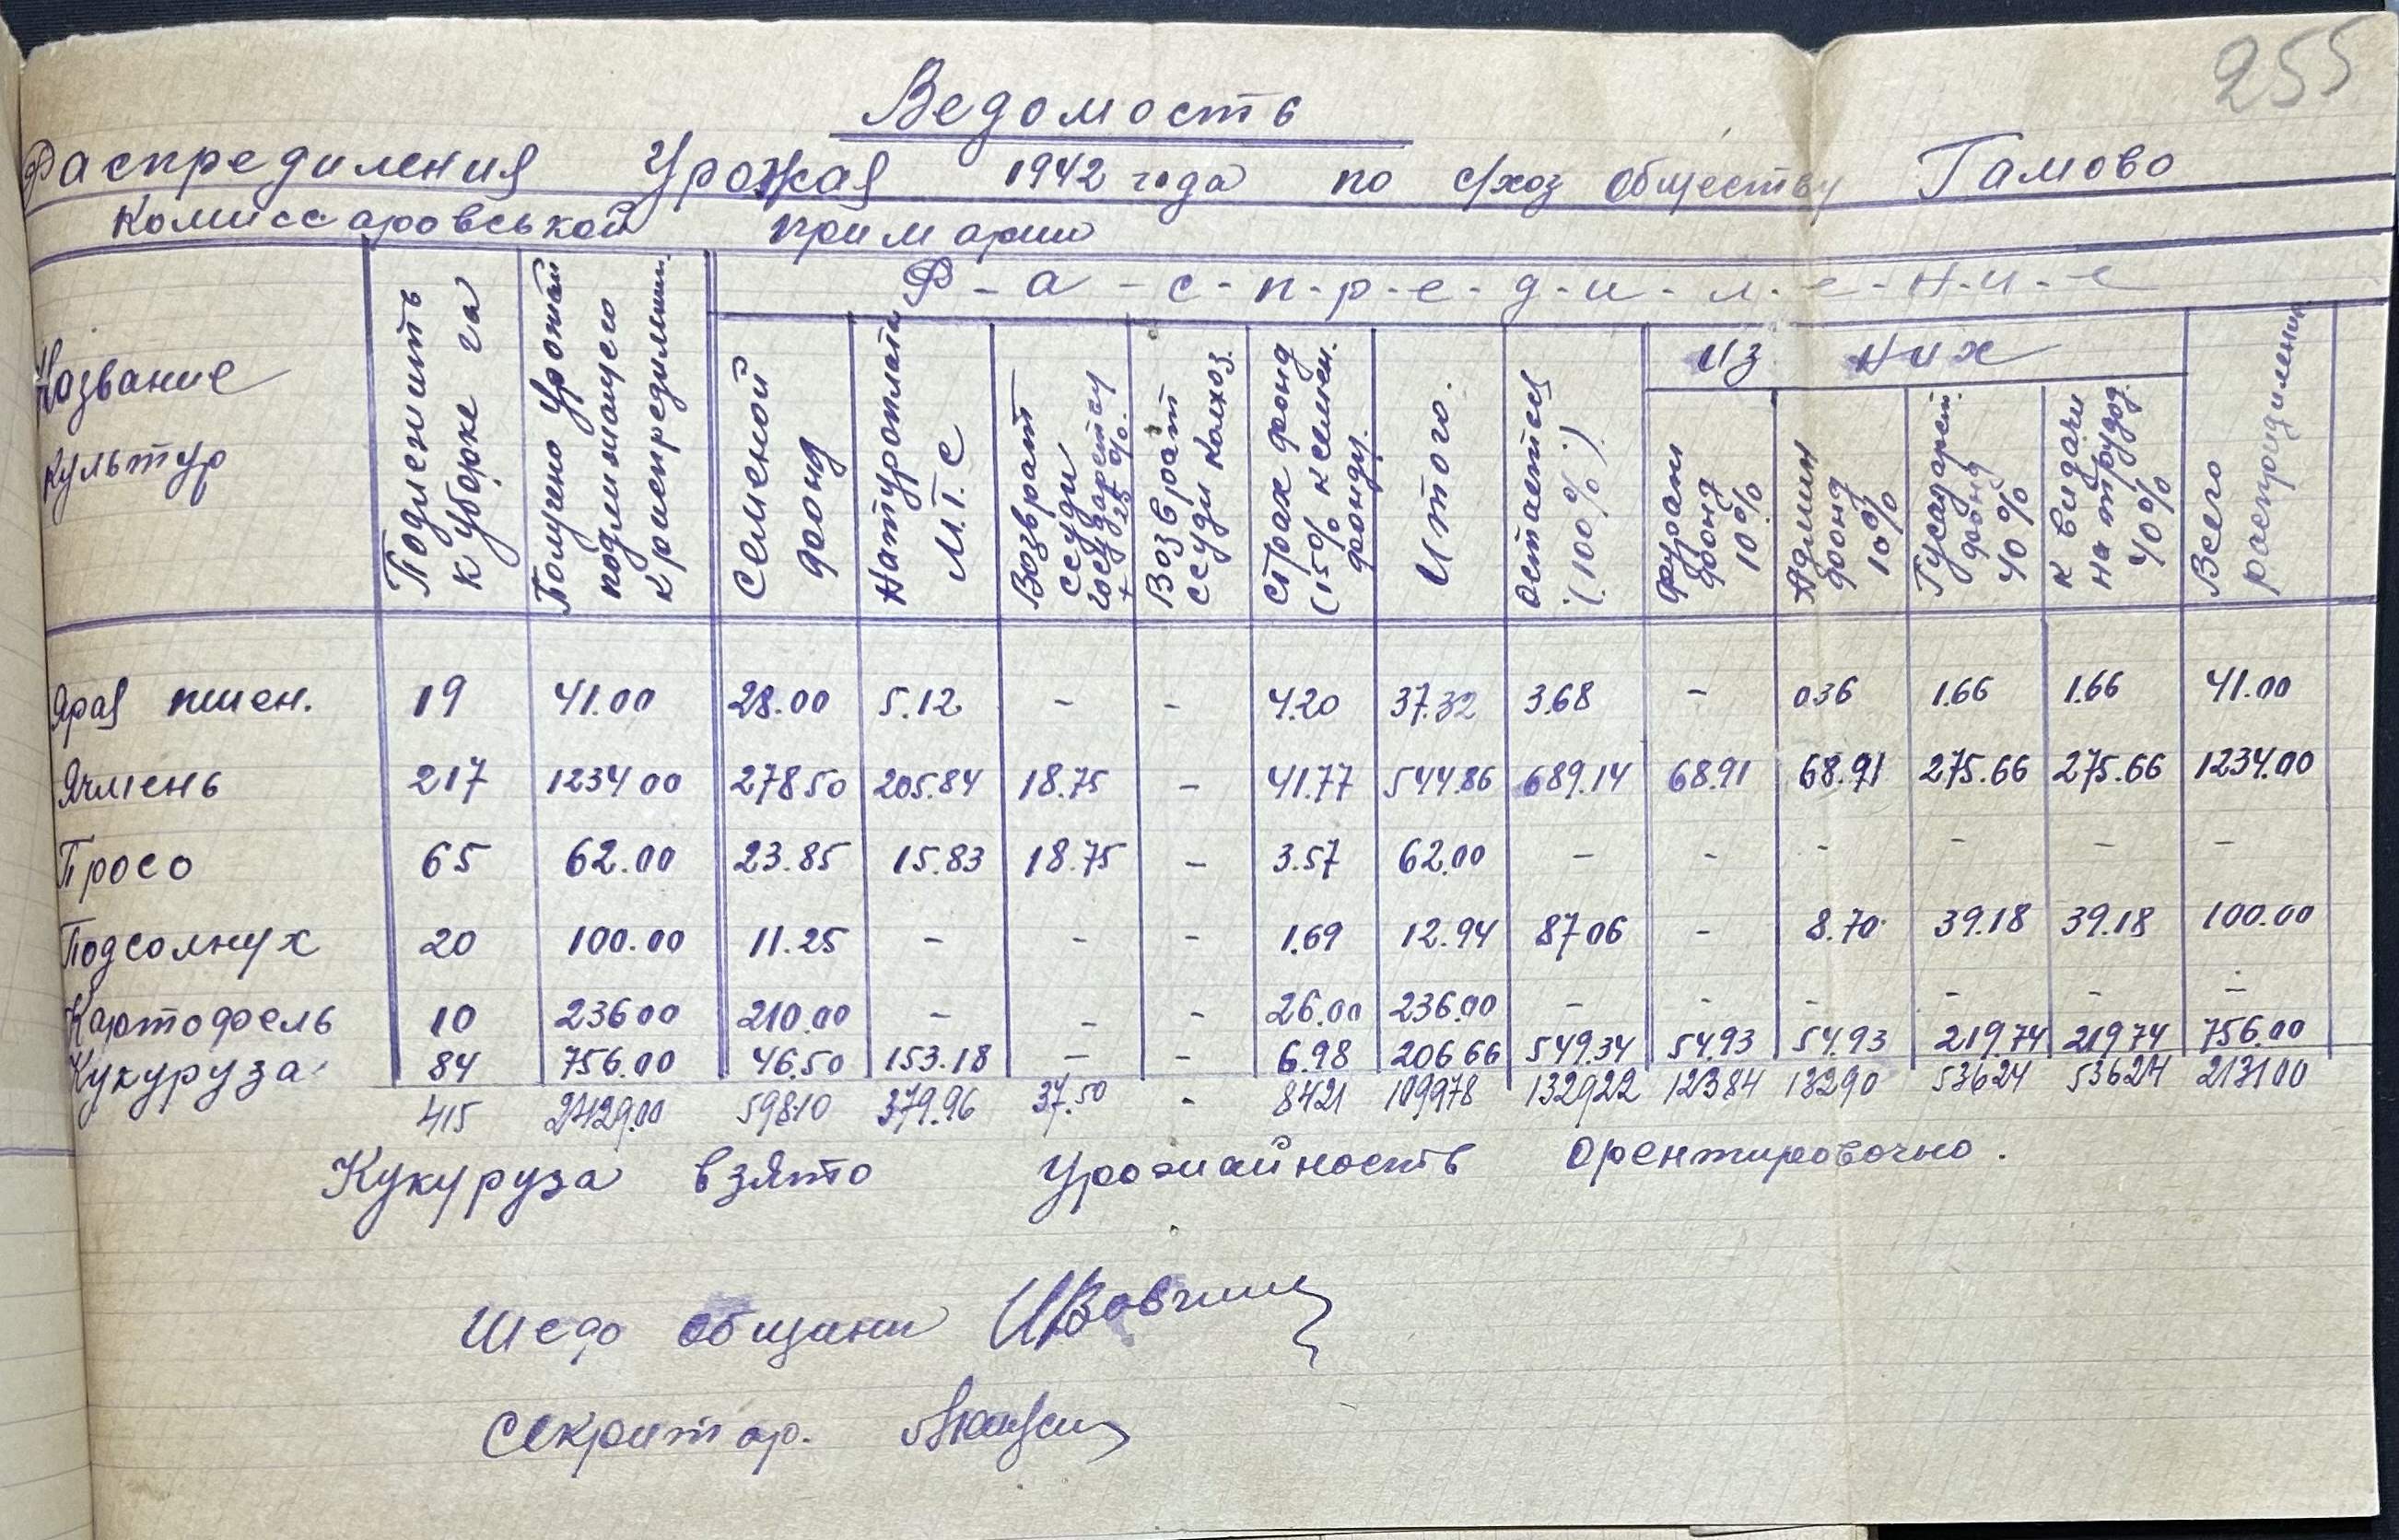 255
Ведомость
Распредиления Урожая 1942 года по с/хоз обществу Гамово
Комиссаровськой примарии
Название культур
Подлежить к уборке га
Получено урожай подлежащего к распредилению
Р-а-с-п-р-е-д-и-л-е-н-и-е
Семеной фонд
Натуроплата М.Т.С
Возврат ссуди государству + 25%.
Возврат ссуди колхоз.
Страх фонд (15% к семен. фонду).
Итого.
Остается (100%).
Из них
фураж фонд 10%
Админ фонд 10%
Гусадарст. фонд 40%
К видачи на трудод. 40%
Всего распридиление
Ярая пшен. 19 41.00 28.00 5.12 - - 4.20 37.32 3.68 - 036 1.66 1.66 41.00
Ячмень 217 1234 00 278 50 205.84 18.75 - 41.77 544.86 689.14 68.91 68.91 275.66 275.66 1234.00
Просо 65 62.00 23.85 15.83 18.75 - 3.57 62.00 - - - - - -
Подсолнух 20 100.00 11.25 - - - 1.69 12.94 87 06 - 8.70 39.18 39.18 100.00
Картофель 10 236 00 210.00 - - - 26.00 236.00 - - - - - -
Кукуруза 84 756.00 46.50 153.18 - - 6.98 206 66 549.34 54.93 54.93 219.74 219 74 756.00
415 2429.00 598.10 379.96 37.50 - 8421 109978 132922 12384 13290 53624 53624 213100
Кукуруза взято урожайность орентировочно.
Шеф общини
Секритар.